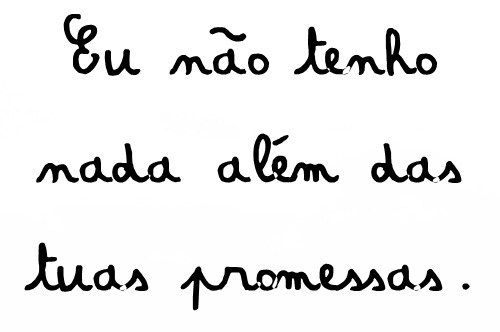 Eu não tenho
nada além das
tuas promessas.